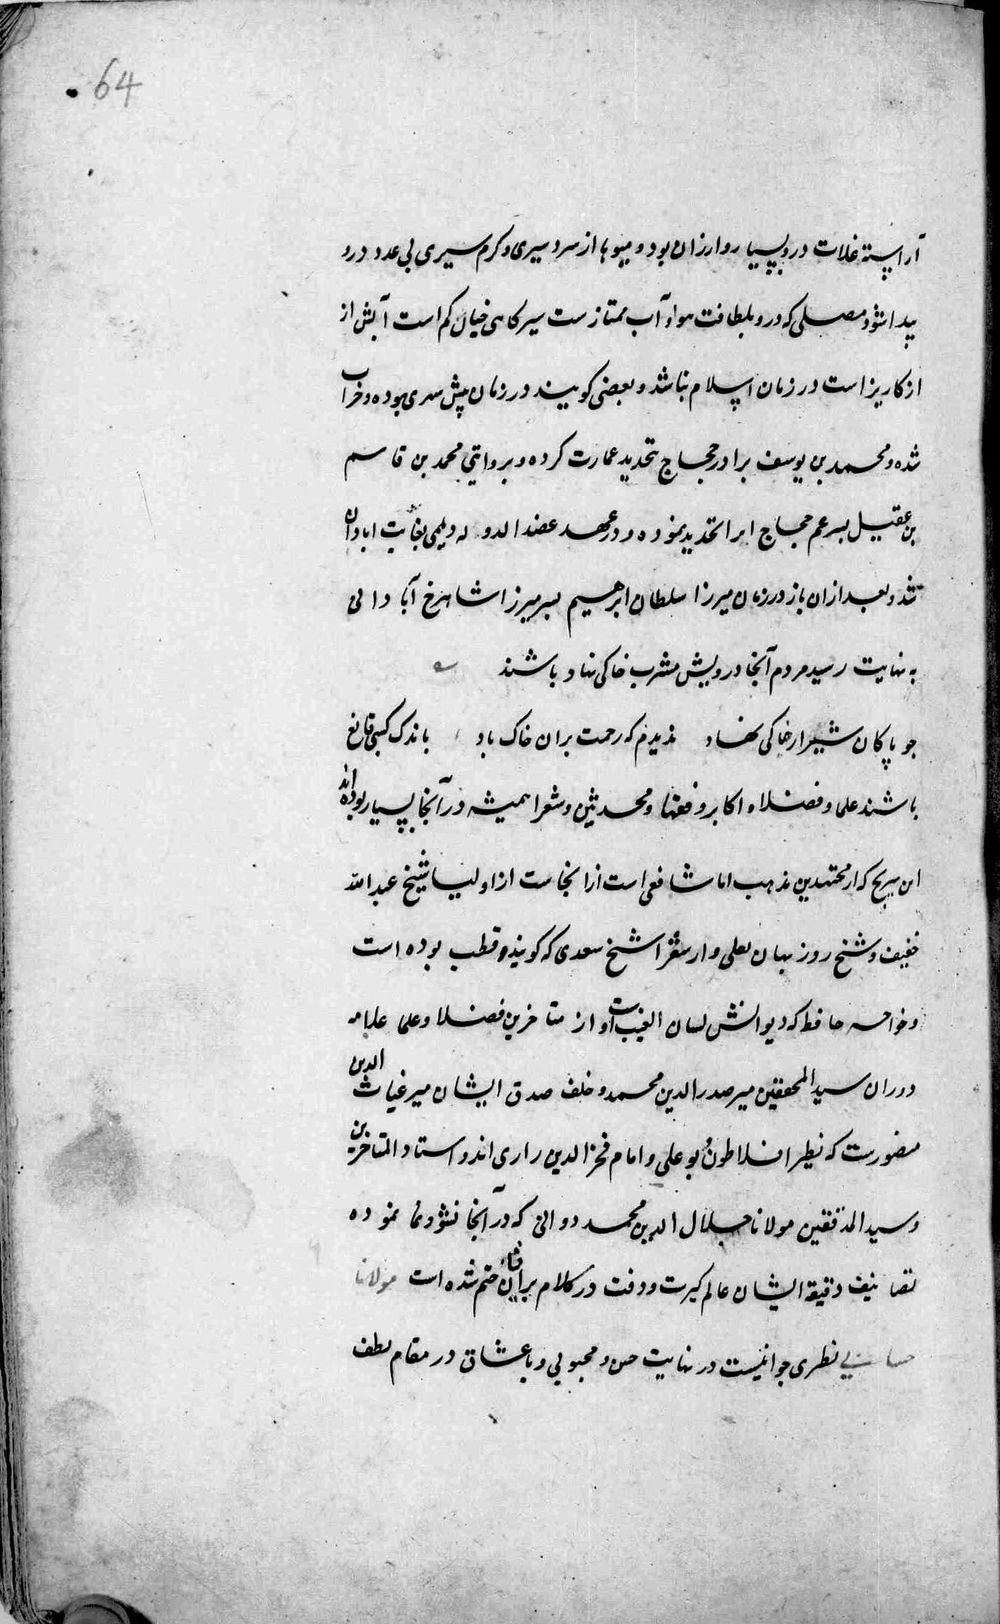 64
آراسته غلات درو بسیار و ارزان بود و میوها از سردسیری و کرم سیری بی عدد درو
پیدا شود و مصلی که درو بلطافت هوا و آب ممتازست سیرکاهی خیال کم است آبش از
از کاریز است در زمان اسلام بنا شد و بعضی کویند در زمان پیش سهری بوده و خراب
شده و محمد بن یوسف برادر حجاج تجدید عمارت کرده و بروایتی محمد بن قاسم
بن عقیل پسر عم حجاج انرا تجدید نموده و در عهد عضدالدوله دیلمی بغایت ابادان
شد و بعد ازان باز در زمان میرزا سلطان ابرهیم پسر میرزا شاهرخ آبادانی
به نهایت رسید مردم آنجا درویش مشرب خاکی نهاد باشند
جو پاکان شیراز خاکی نهاد ندیدم که رحمت بران خاک باد باندک کسبی قانع
باشند علما و فضلاء اکابر و فقها و محدثین و شعرا همیشه در آنجا بسیار بوده اند
ابن سریج که از مجتهدین مذهب امام شافعی است از انجاست از اولیا شیخ عبدالله
خفیف و شیخ روزبهان بقلی و از شعرا شیخ سعدی که کویند قطب بوده است
و خواجه حافظ که دیوانش لسان الغیب است و از متاخرین فضلا و علما علامه
دوران سید المحققین میر صدرالدین محمد و خلف صدق ایشان میر غیاث الدین
منصورست که نظیر افلاطون و بوعلی و امام فخرالدین رازی اند و استاد المتاخرین
و سید المدققین مولانا جلال الدین محمد دوانی که در آنجا نشو و نما نموده
تصانیف دقیقه ایشان عالم کیرست و دقت در کلام برایشان ختم شده است مولانا
نظری جوانیست در نهایت حسن و محبوبی و با عشاق در مقام لطف